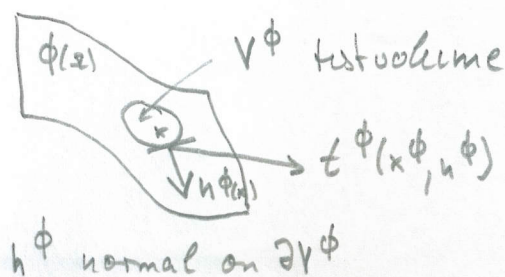 ϕ(x)
V^ϕ testvolume
x
t^ϕ(x^ϕ, n^ϕ)
n^ϕ(x)
n^ϕ normal on ∂V^ϕ